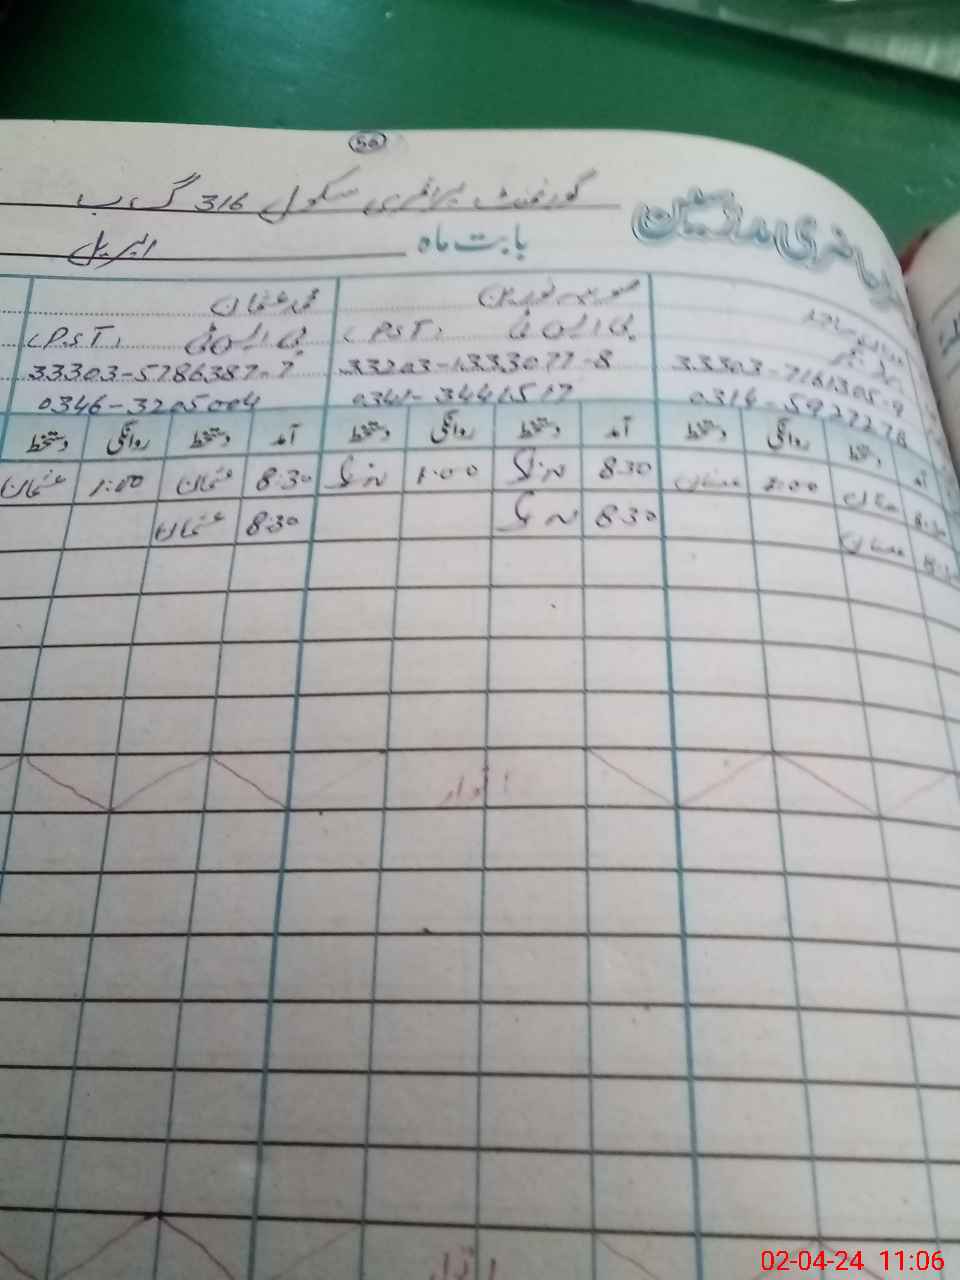 50
گورنمنٹ پرائمری سکول 316 گ ب
حاضری مدرسین
بابت ماہ اپریل
محمد عثمان
پی ایس ٹی (P.S.T) پی ایس ٹی (P.S.T)
33303-7161305-9 33203-1333077-8 33303-5786387-7
0314-5927278 0341-3441517 0346-3205004
آمد دستخط روانگی دستخط آمد دستخط روانگی دستخط آمد دستخط روانگی دستخط
8:30 1:00 8:30 1:00 8:30 عثمان 1:00 عثمان
8:30 8:30 8:30 عثمان
اتوار
اتوار
02-04-24 11:06